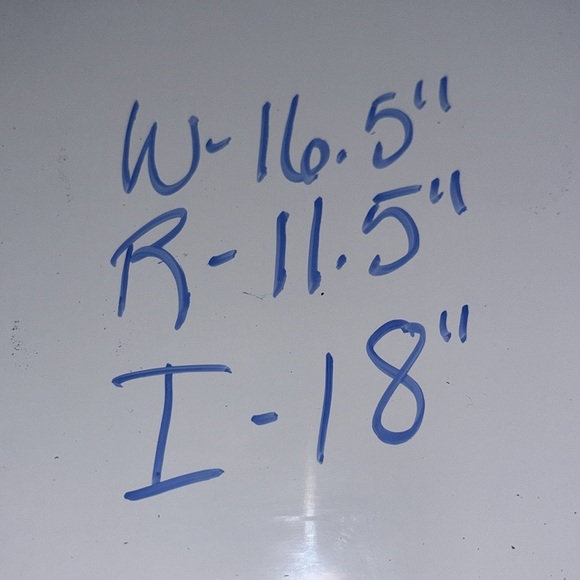 W-16.5"
R-11.5"
I-18"